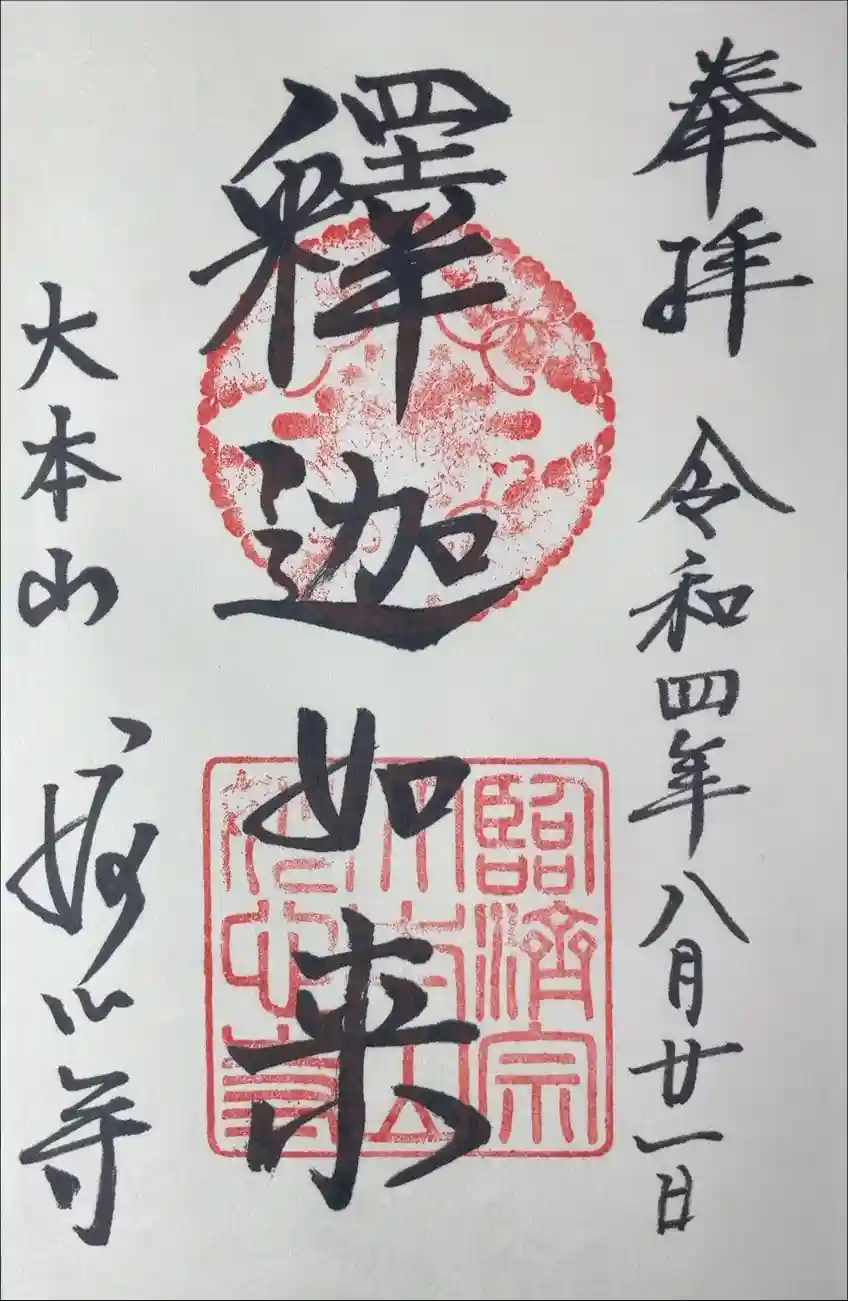 奉拝 令和四年八月廿一日
釋迦如来
大本山 妙心寺
臨濟宗
大本山
妙心寺